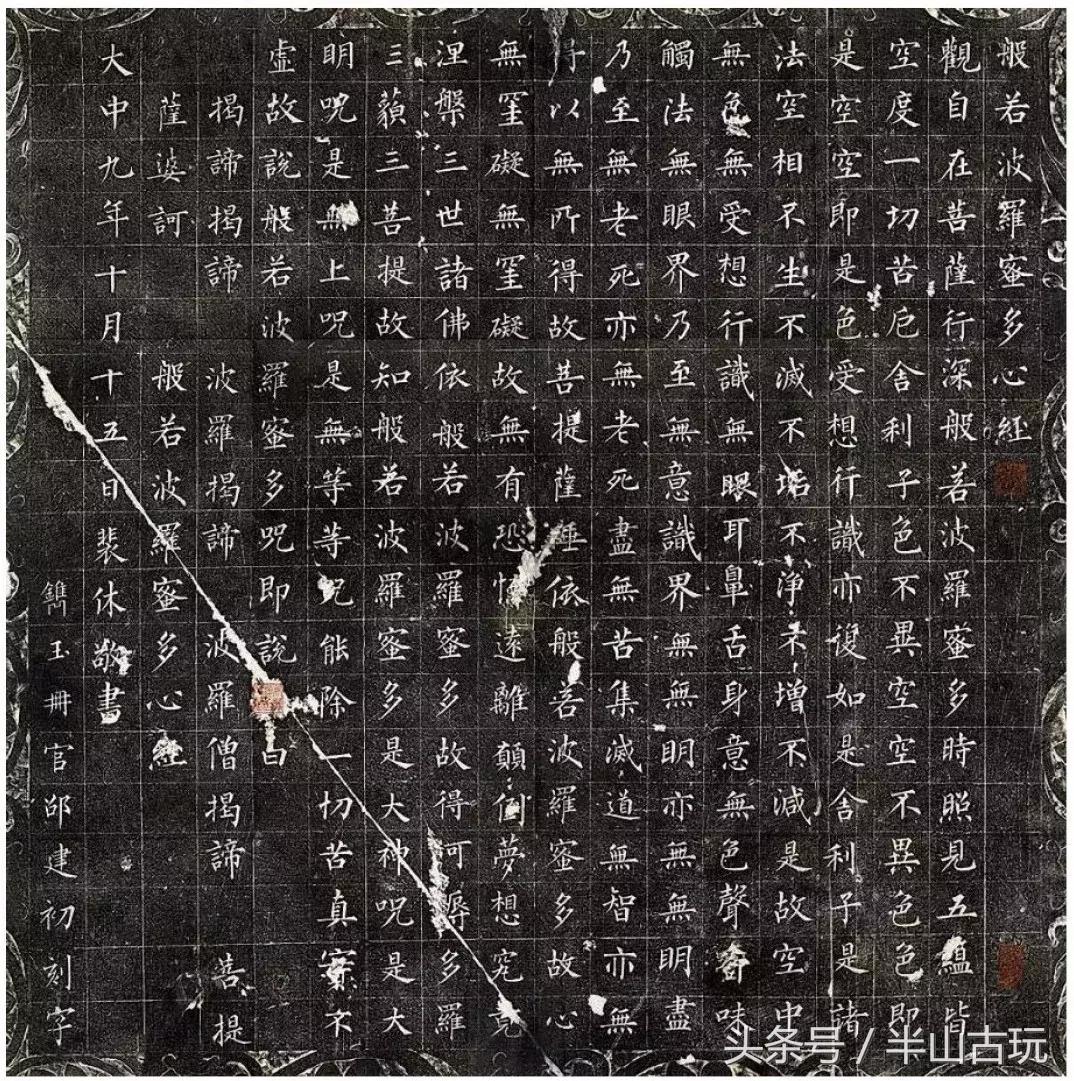 般若波羅蜜多心經
觀自在菩薩行深般若波羅蜜多時照見五蘊皆
空度一切苦厄舍利子色不異空空不異色色即
是空空即是色受想行識亦復如是舍利子是諸
法空相不生不滅不垢不淨不增不減是故空中
無色無受想行識無眼耳鼻舌身意無色聲香味
觸法無眼界乃至無意識界無無明亦無無明盡
乃至無老死亦無老死盡無苦集滅道無智亦無
得以無所得故菩提薩埵依般若波羅蜜多故心
無罣礙無罣礙故無有恐怖遠離顛倒夢想究竟
涅槃三世諸佛依般若波羅蜜多故得阿耨多羅
三藐三菩提故知般若波羅蜜多是大神咒是大
明咒是無上咒是無等等咒能除一切苦真實不
虛故說般若波羅蜜多咒即說曰
揭諦揭諦 波羅揭諦 波羅僧揭諦 菩提
薩婆訶 般若波羅蜜多心經
大中九年十月十五日裴休敬書
鐫玉冊官邵建初刻字
头条号 / 半山古玩